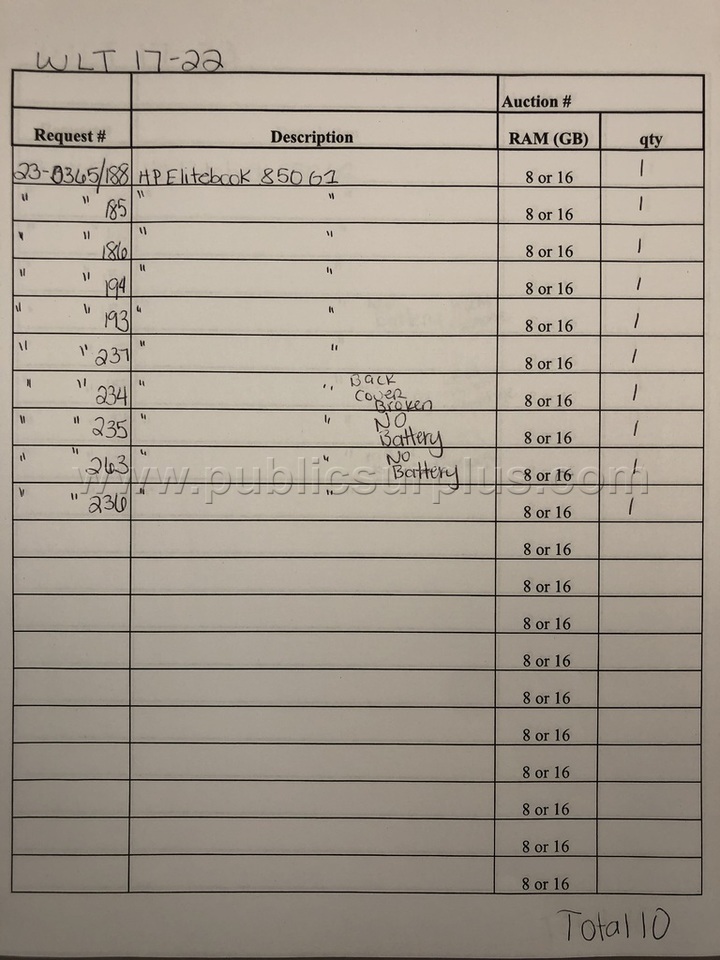 WLT 17-22
Auction #
Request # Description RAM (GB) qty
23-0365/188 HP Elitebook 850 G1 8 or 16 1
" " 185 " " 8 or 16 1
" " 186 " " 8 or 16 1
" " 194 " " 8 or 16 1
" " 193 " " 8 or 16 1
" " 237 " " 8 or 16 1
" " 234 " " Back Cover Broken 8 or 16 1
" " 235 " " No Battery 8 or 16 1
" " 263 " " No Battery 8 or 16 1
www.publicsurplus.com
" " 236 " " 8 or 16 1
8 or 16
8 or 16
8 or 16
8 or 16
8 or 16
8 or 16
8 or 16
8 or 16
8 or 16
8 or 16
Total 10